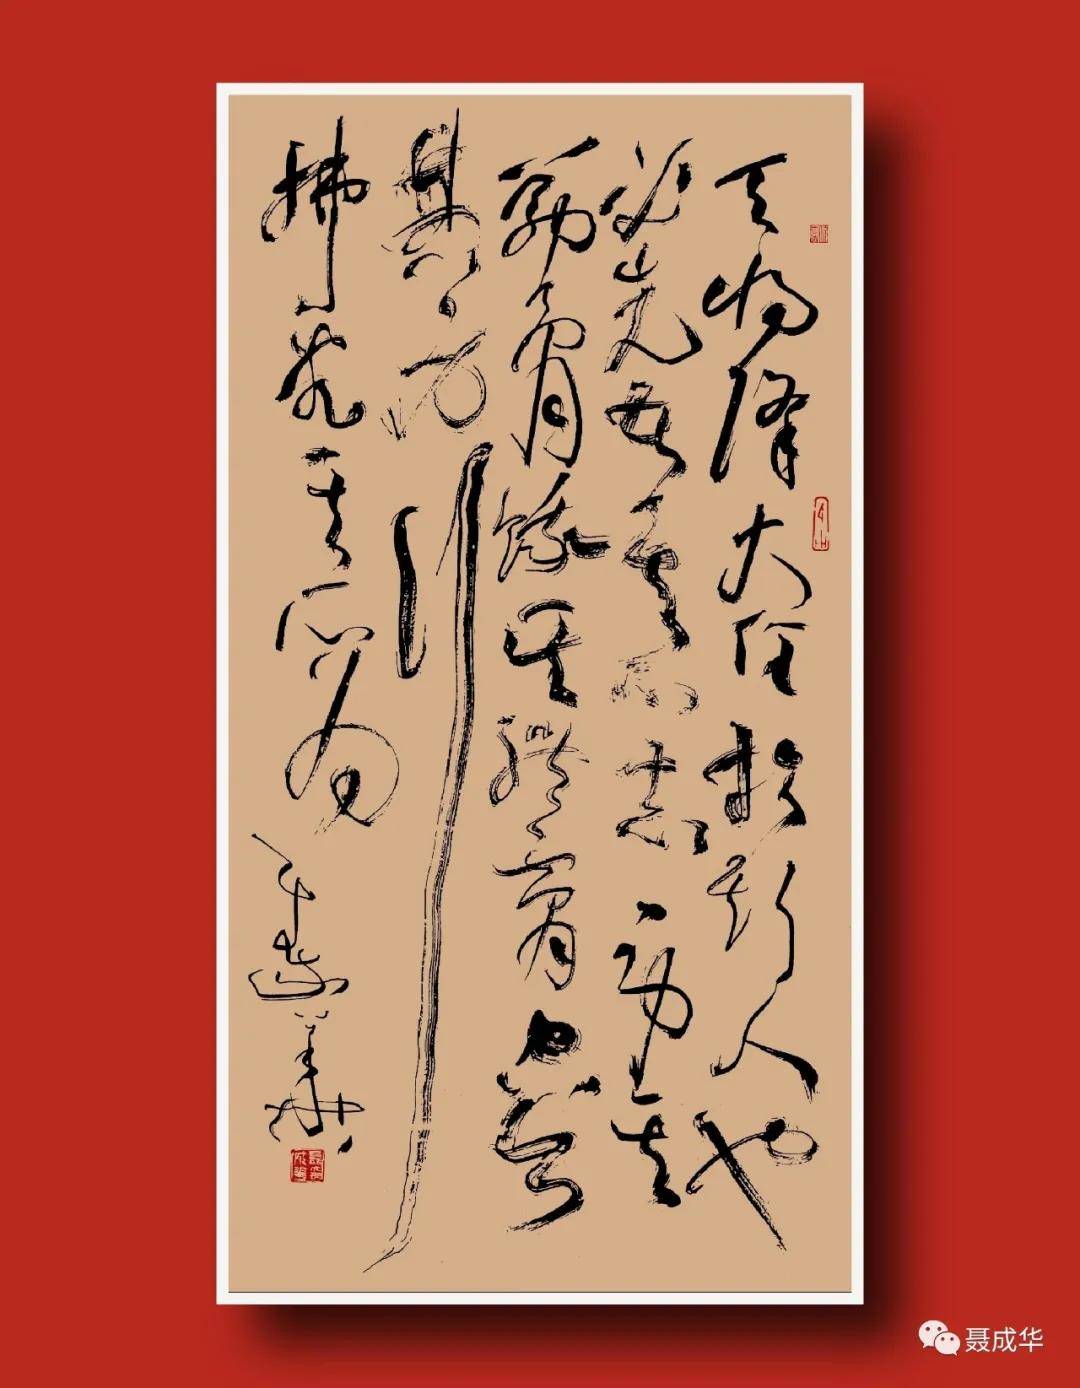 天将降大任於斯人也
必先苦其心志劳其
筋骨餓其體膚空乏
其身行
拂乱其所为
聂成华
聂成华